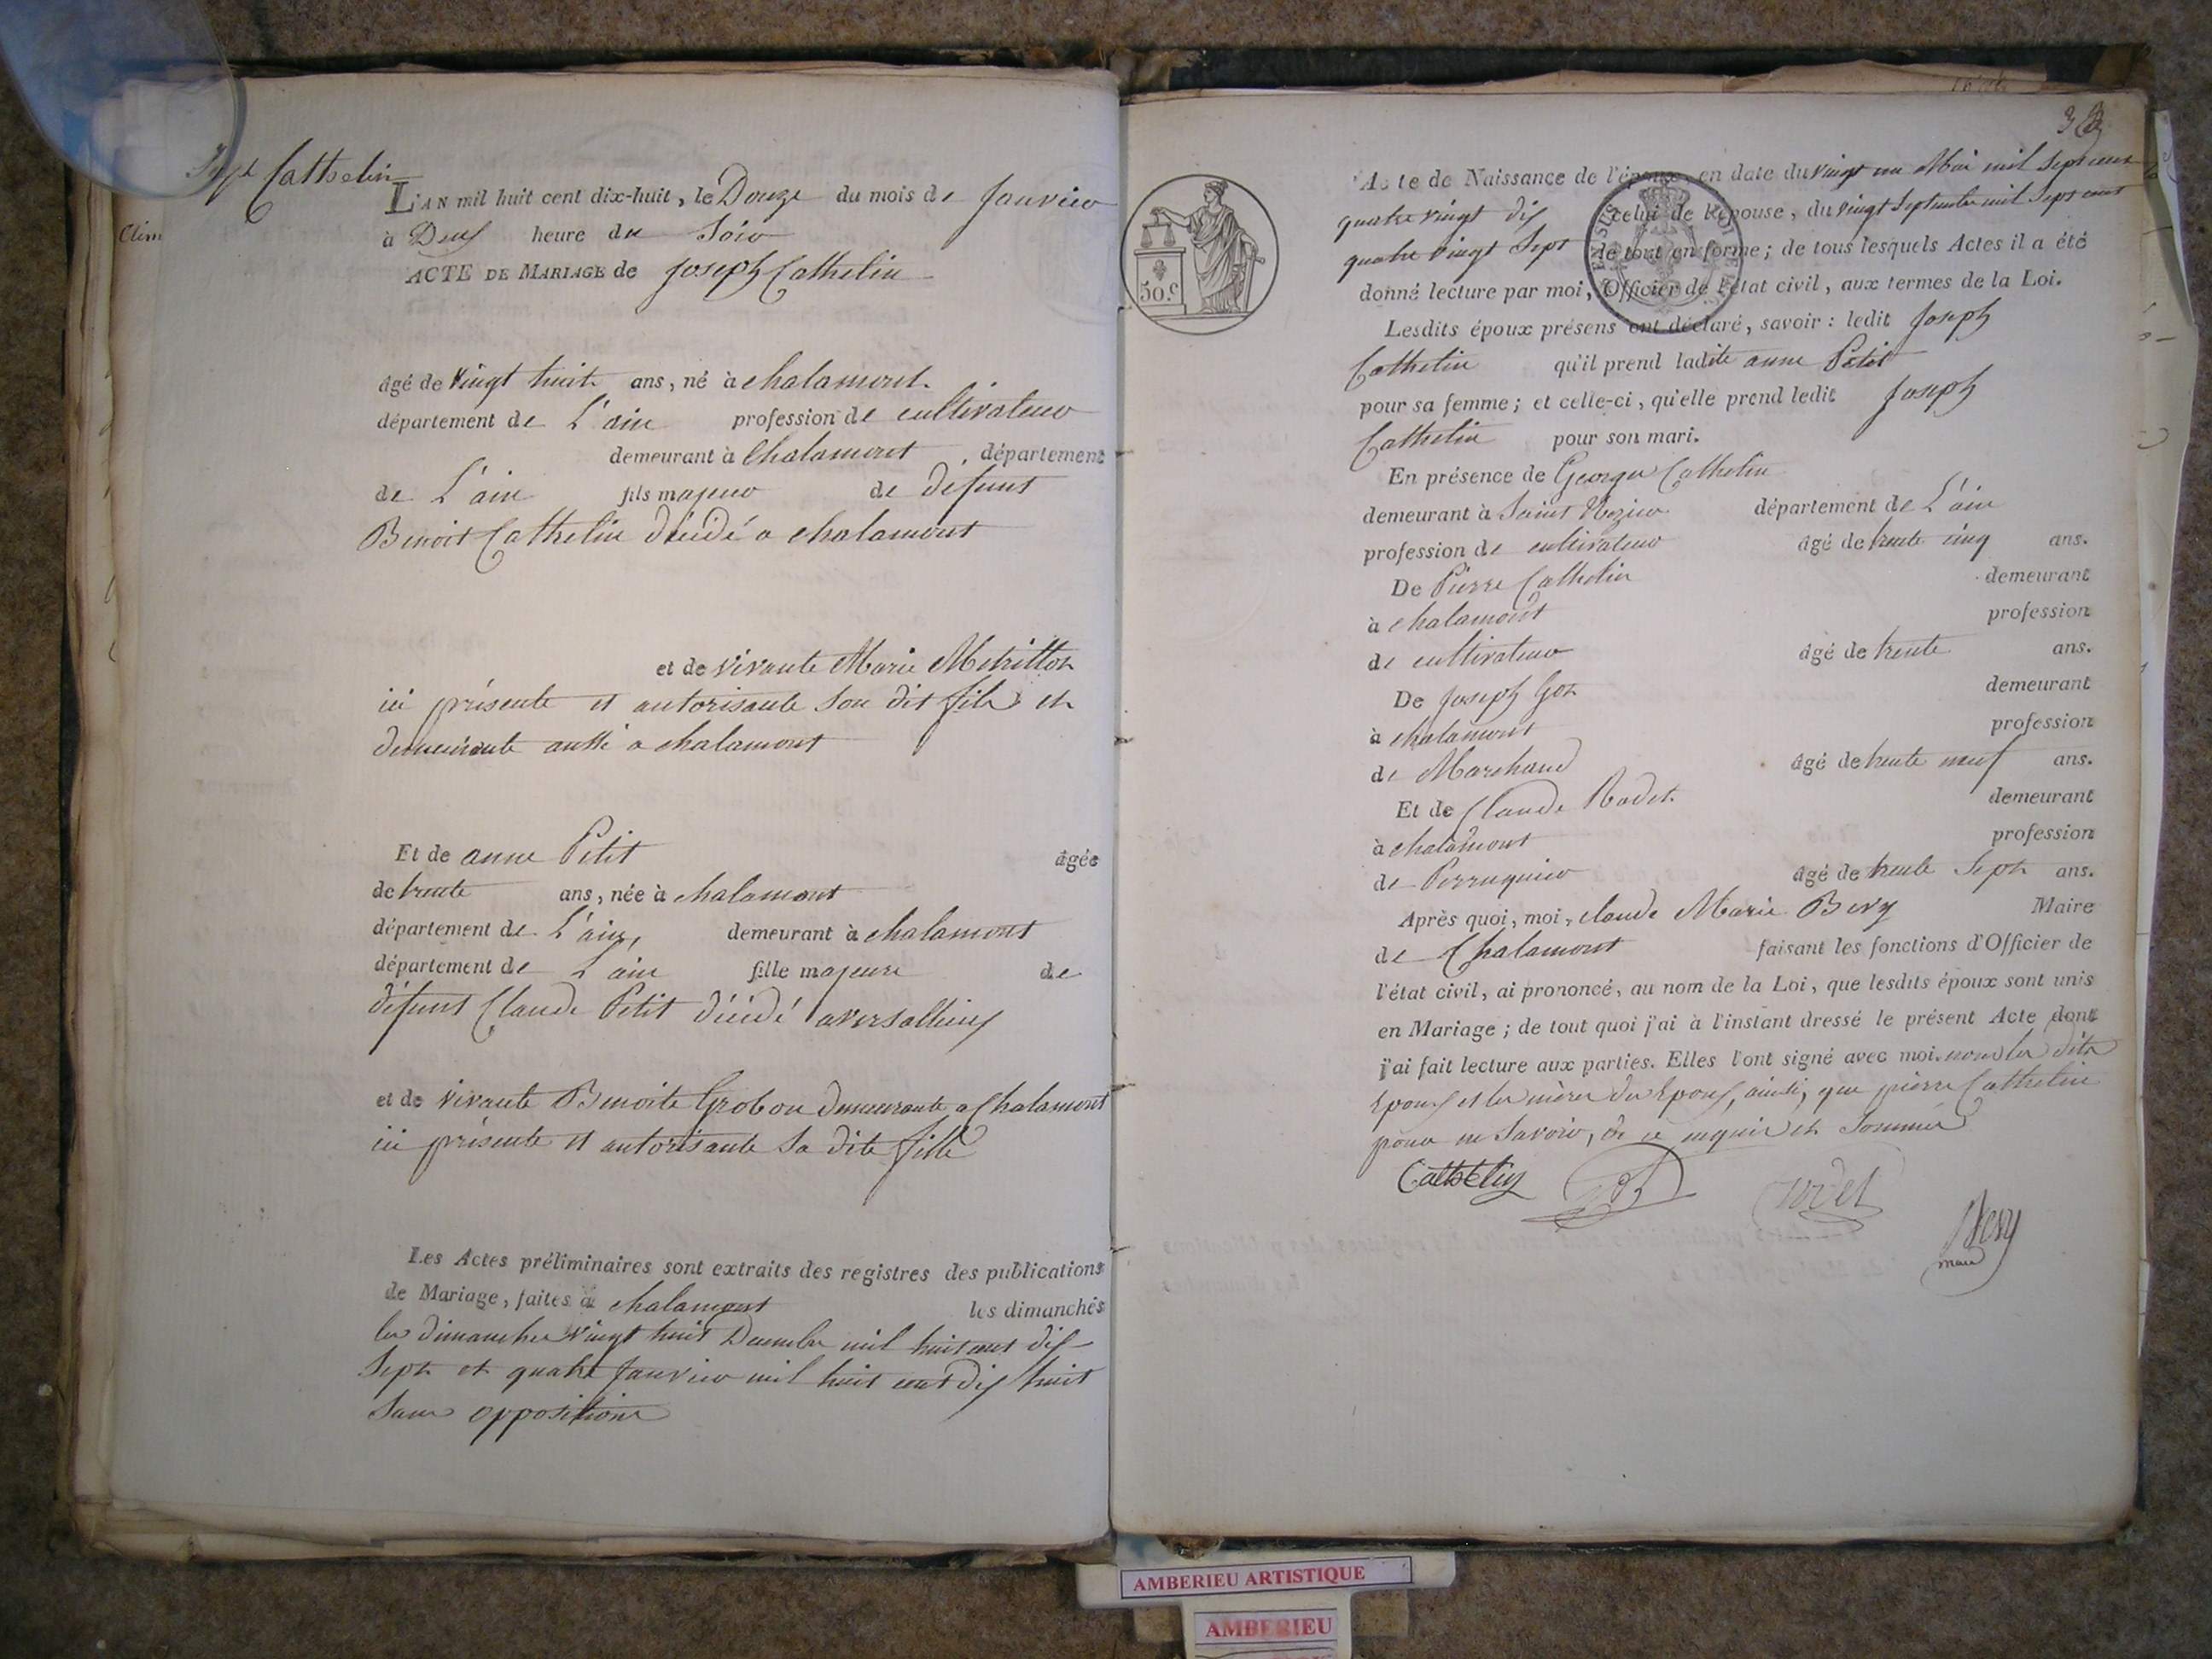 Josph Cathelin
L'AN mil huit cent dix-huit, le Douze du mois de Janvier
à Deux heure du Soir
ACTE DE MARIAGE de Joseph Cathelin
âgé de vingt huit ans, né à chalamont
département de L'ain profession de cultivateur
demeurant à Chalamont département
de L'ain fils majeur de défunt
Benoit Cathelin décédé a chalamont
et de vivante Marie
ici présente et autorisante son dit fils et
demeurante aussi a chalamont
Et de anne Petit âgée
de trente ans, née à chalamont
département de L'ain, demeurant à chalamont
département de L'ain fille majeure de
défunt Claude Petit décédé a versallieux
et de vivante Benoite Grobon demeurante a Chalamont
ici présente et autorisante sa dite fille
Les Actes préliminaires sont extraits des registres des publications
de Mariage, faites à chalamont les dimanches
les dimanches vingt huit Decembre mil huit cent dix
sept et quatre Janvier mil huit cent dix huit
sans oppositions
3
Acte de Naissance de l'époux, en date du vingt un Mai mil sept cent
quatre vingt dix celui de l'épouse, du vingt septembre mil sept cent
quatre vingt sept le tout en forme; de tous lesquels Actes il a été
donné lecture par moi, Officier de l'état civil, aux termes de la Loi.
50.c
EN SUS
Lesdits époux présens ont déclaré, savoir: ledit Joseph
Cathelin qu'il prend ladite anne Petit
pour sa femme; et celle-ci, qu'elle prend ledit Joseph
Cathelin pour son mari.
En présence de George Cathelin
demeurant à Saint Nizier département de L'ain
profession de cultivateur âgé de trente cinq ans.
De Pierre Cathelin demeurant
à chalamont profession
de cultivateur âgé de trente ans.
De Joseph Goz demeurant
à chalamont profession
de Marchand âgé de trente neuf ans.
Et de Claude Rodet demeurant
à chalamont profession
de Perruquier âgé de trente sept ans.
Après quoi, moi, claude Marie Bevy Maire
de Chalamont faisant les fonctions d'Officier de
l'état civil, ai prononcé, au nom de la Loi, que lesdits époux sont unis
en Mariage; de tout quoi j'ai à l'instant dressé le présent Acte dont
j'ai fait lecture aux parties. Elles l'ont signé avec moi. non les dits
Epoux et les mères des Epoux, ainsi, que pierre Cathelin
pour ne savoir, de ce enquis et sommés
Cathelin
rodet
Bevy
maire
AMBERIEU ARTISTIQUE
AMBERIEU